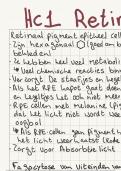 Hc1 Retin
Retinaal pigment epitheel cell
- Zijn hexagonaal
bekleden)
- Ze hebben heel veel metabol
* Veel chemische reacties
- Verzorgt de staafjes en kegel
- Als het RPE kapot gaat doen
en kegeltjes het ook niet meer
- RPE cellen met melanine
dat het licht niet wordt weer
oogbol
* Als RPE cellen geen pigment h
het licht weerkaatst
Zorgt voor absorbtie licht
Fagocytose van uiteinden van